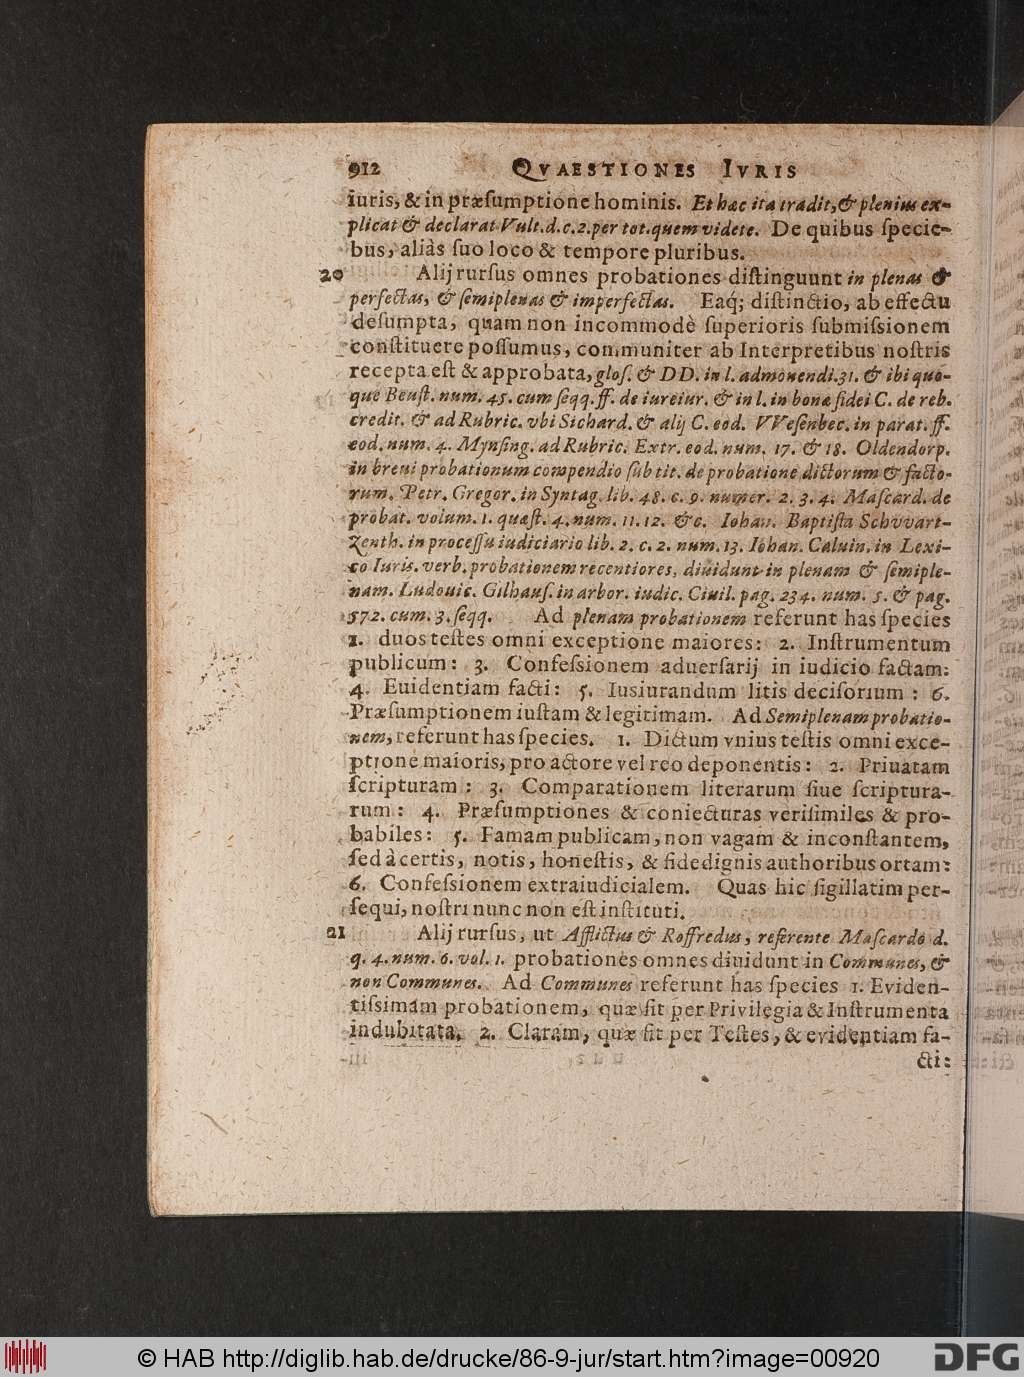 912 QVAESTIONES IVRIS
iuris, & in præsumptione hominis. Et hæc ita tradit, & plenius ex-
plicat & declarat Vult. d. c. 2. per tot. quem videte. De quibus specie-
bus, aliàs suo loco & tempore pluribus.
20 Alij rursus omnes probationes distinguunt in plenas &
perfectas, & semiplenas & imperfectas. Eaq́; distinctio, ab effectu
desumpta, quam non incommodè superioris submissionem
constituere possumus, communiter ab Interpretibus nostris
recepta est & approbata, glos. & DD. in l. admonendi. 31. & ibi quo-
que Beust. num. 45. cum seqq. ff. de iureiur. & in l. in bonæ fidei C. de reb.
credit. & ad Rubric. vbi Sichard. & alij C. eod. VVesenbec. in parat. ff.
eod. num. 4. Mynsing. ad Rubric. Extr. eod. num. 17. & 18. Oldendorp.
in breui probationum compendio sub tit. de probatione dictorum & facto-
rum. Petr. Gregor. in Syntag. lib. 48. c. 9. numer. 2. 3. 4. Mascard. de
probat. volum. 1. quæst. 4. num. 11. 12. &c. Iohan. Baptista Schvvart-
zenth. in processu iudiciario lib. 2. c. 2. num. 13. Iohan. Caluin. in Lexi-
co Iuris. verb. probationem recentiores, diuidunt in plenam & semiple-
nam. Ludouic. Gilhaus. in arbor. iudic. Ciuil. pag. 234. num. 5. & pag.
572. cum. 3. seqq. Ad plenam probationem referunt has species
1. duos testes omni exceptione maiores: 2. Instrumentum
publicum: 3. Confessionem aduersarij in iudicio factam:
4. Euidentiam facti: 5. Iusiurandum litis decisorium: 6.
Præsumptionem iustam & legitimam. Ad Semiplenam probatio-
nem, referunt has species. 1. Dictum vnius testis omni exce-
ptione maioris, pro actore vel reo deponentis: 2. Priuatam
scripturam: 3. Comparationem literarum siue scriptura-
rum: 4. Præsumptiones & coniecturas verisimiles & pro-
babiles: 5. Famam publicam, non vagam & inconstantem,
sed à certis, notis, honestis, & fide dignis authoribus ortam:
6. Confessionem extraiudicialem. Quas hic sigillatim per-
sequi, nostri nunc non est instituti.
21 Alij rursus, ut Afflictus & Roffredus, referente Mascardo d.
q. 4. num. 6. vol. 1. probationes omnes diuidunt in Communes, &
non Communes. Ad Communes referunt has species 1. Eviden-
tissimam probationem, quæ fit per Privilegia & Instrumenta
indubitata, 2. Claram, quæ fit per Testes, & evidentiam fa-
cti:
© HAB http://diglib.hab.de/drucke/86-9-jur/start.htm?image=00920
DFG